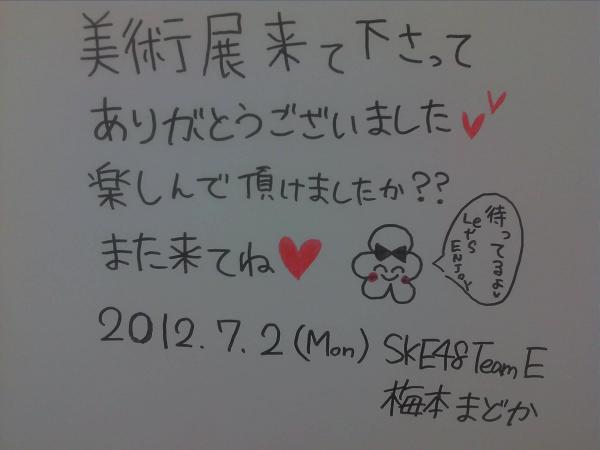 美術展来て下さって
ありがとうございました
楽しんで頂けましたか??
また来てね
待ってるよ
Let's
ENJOY
2012.7.2(Mon) SKE48 Team E
梅本まどか